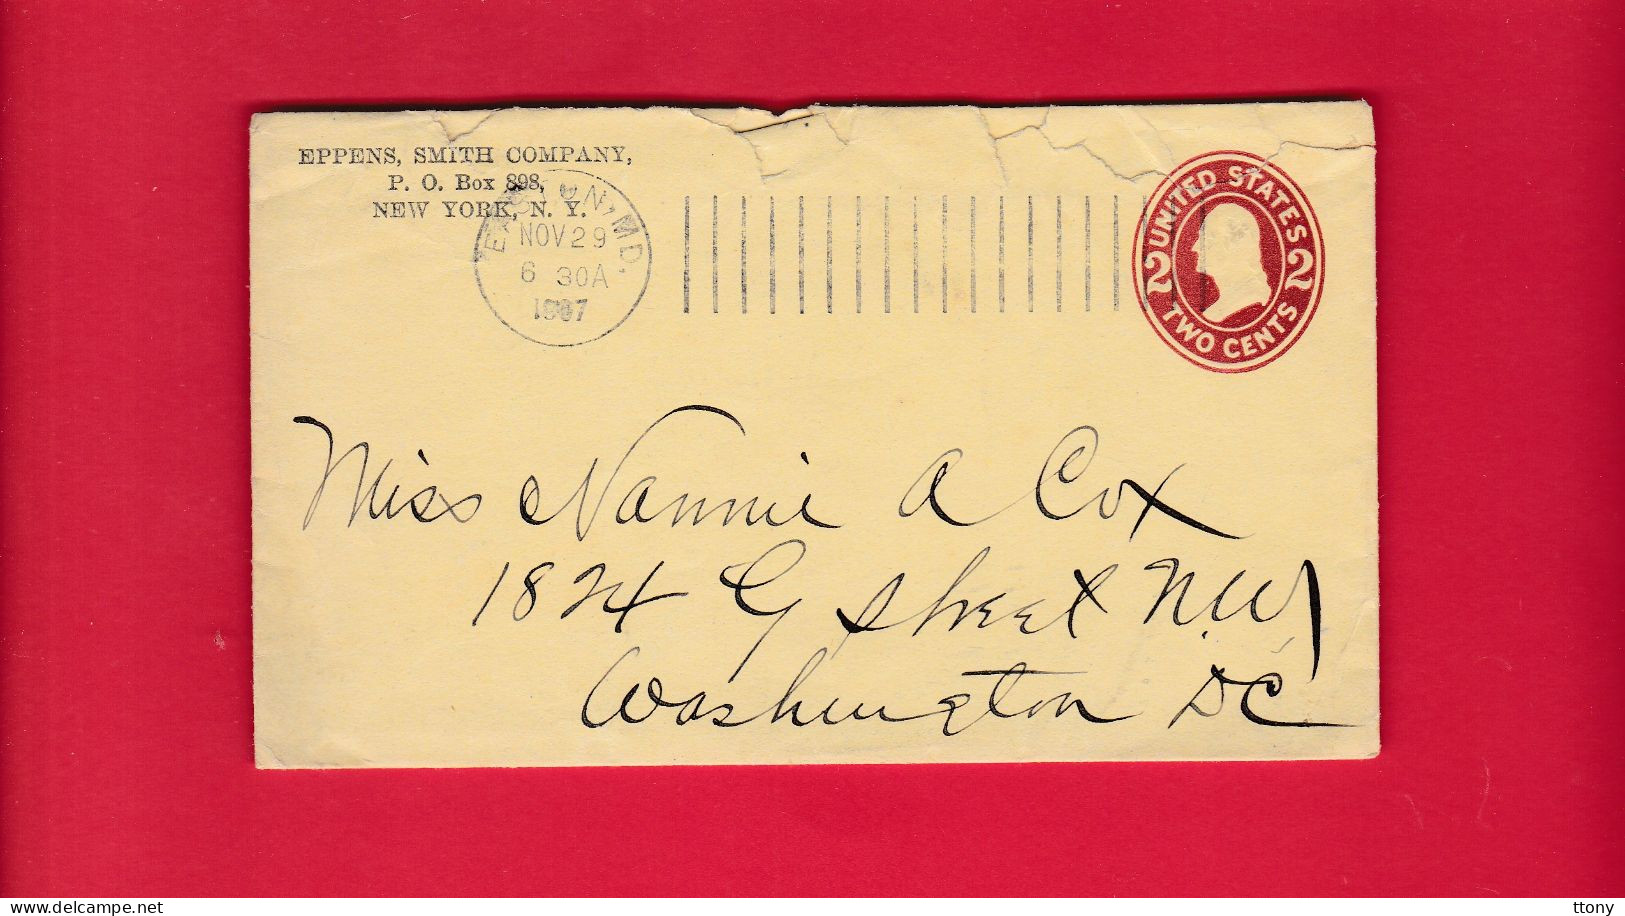 EPPENS, SMITH COMPANY,
P. O. Box 898,
NEW YORK, N. Y.
EASTON, MD.
NOV 29
6 30A
1907
UNITED STATES
2 2
TWO CENTS
Miss Nannie A Cox
1824 G Street N.W.
Washington DC
Delcampe.net
ttony